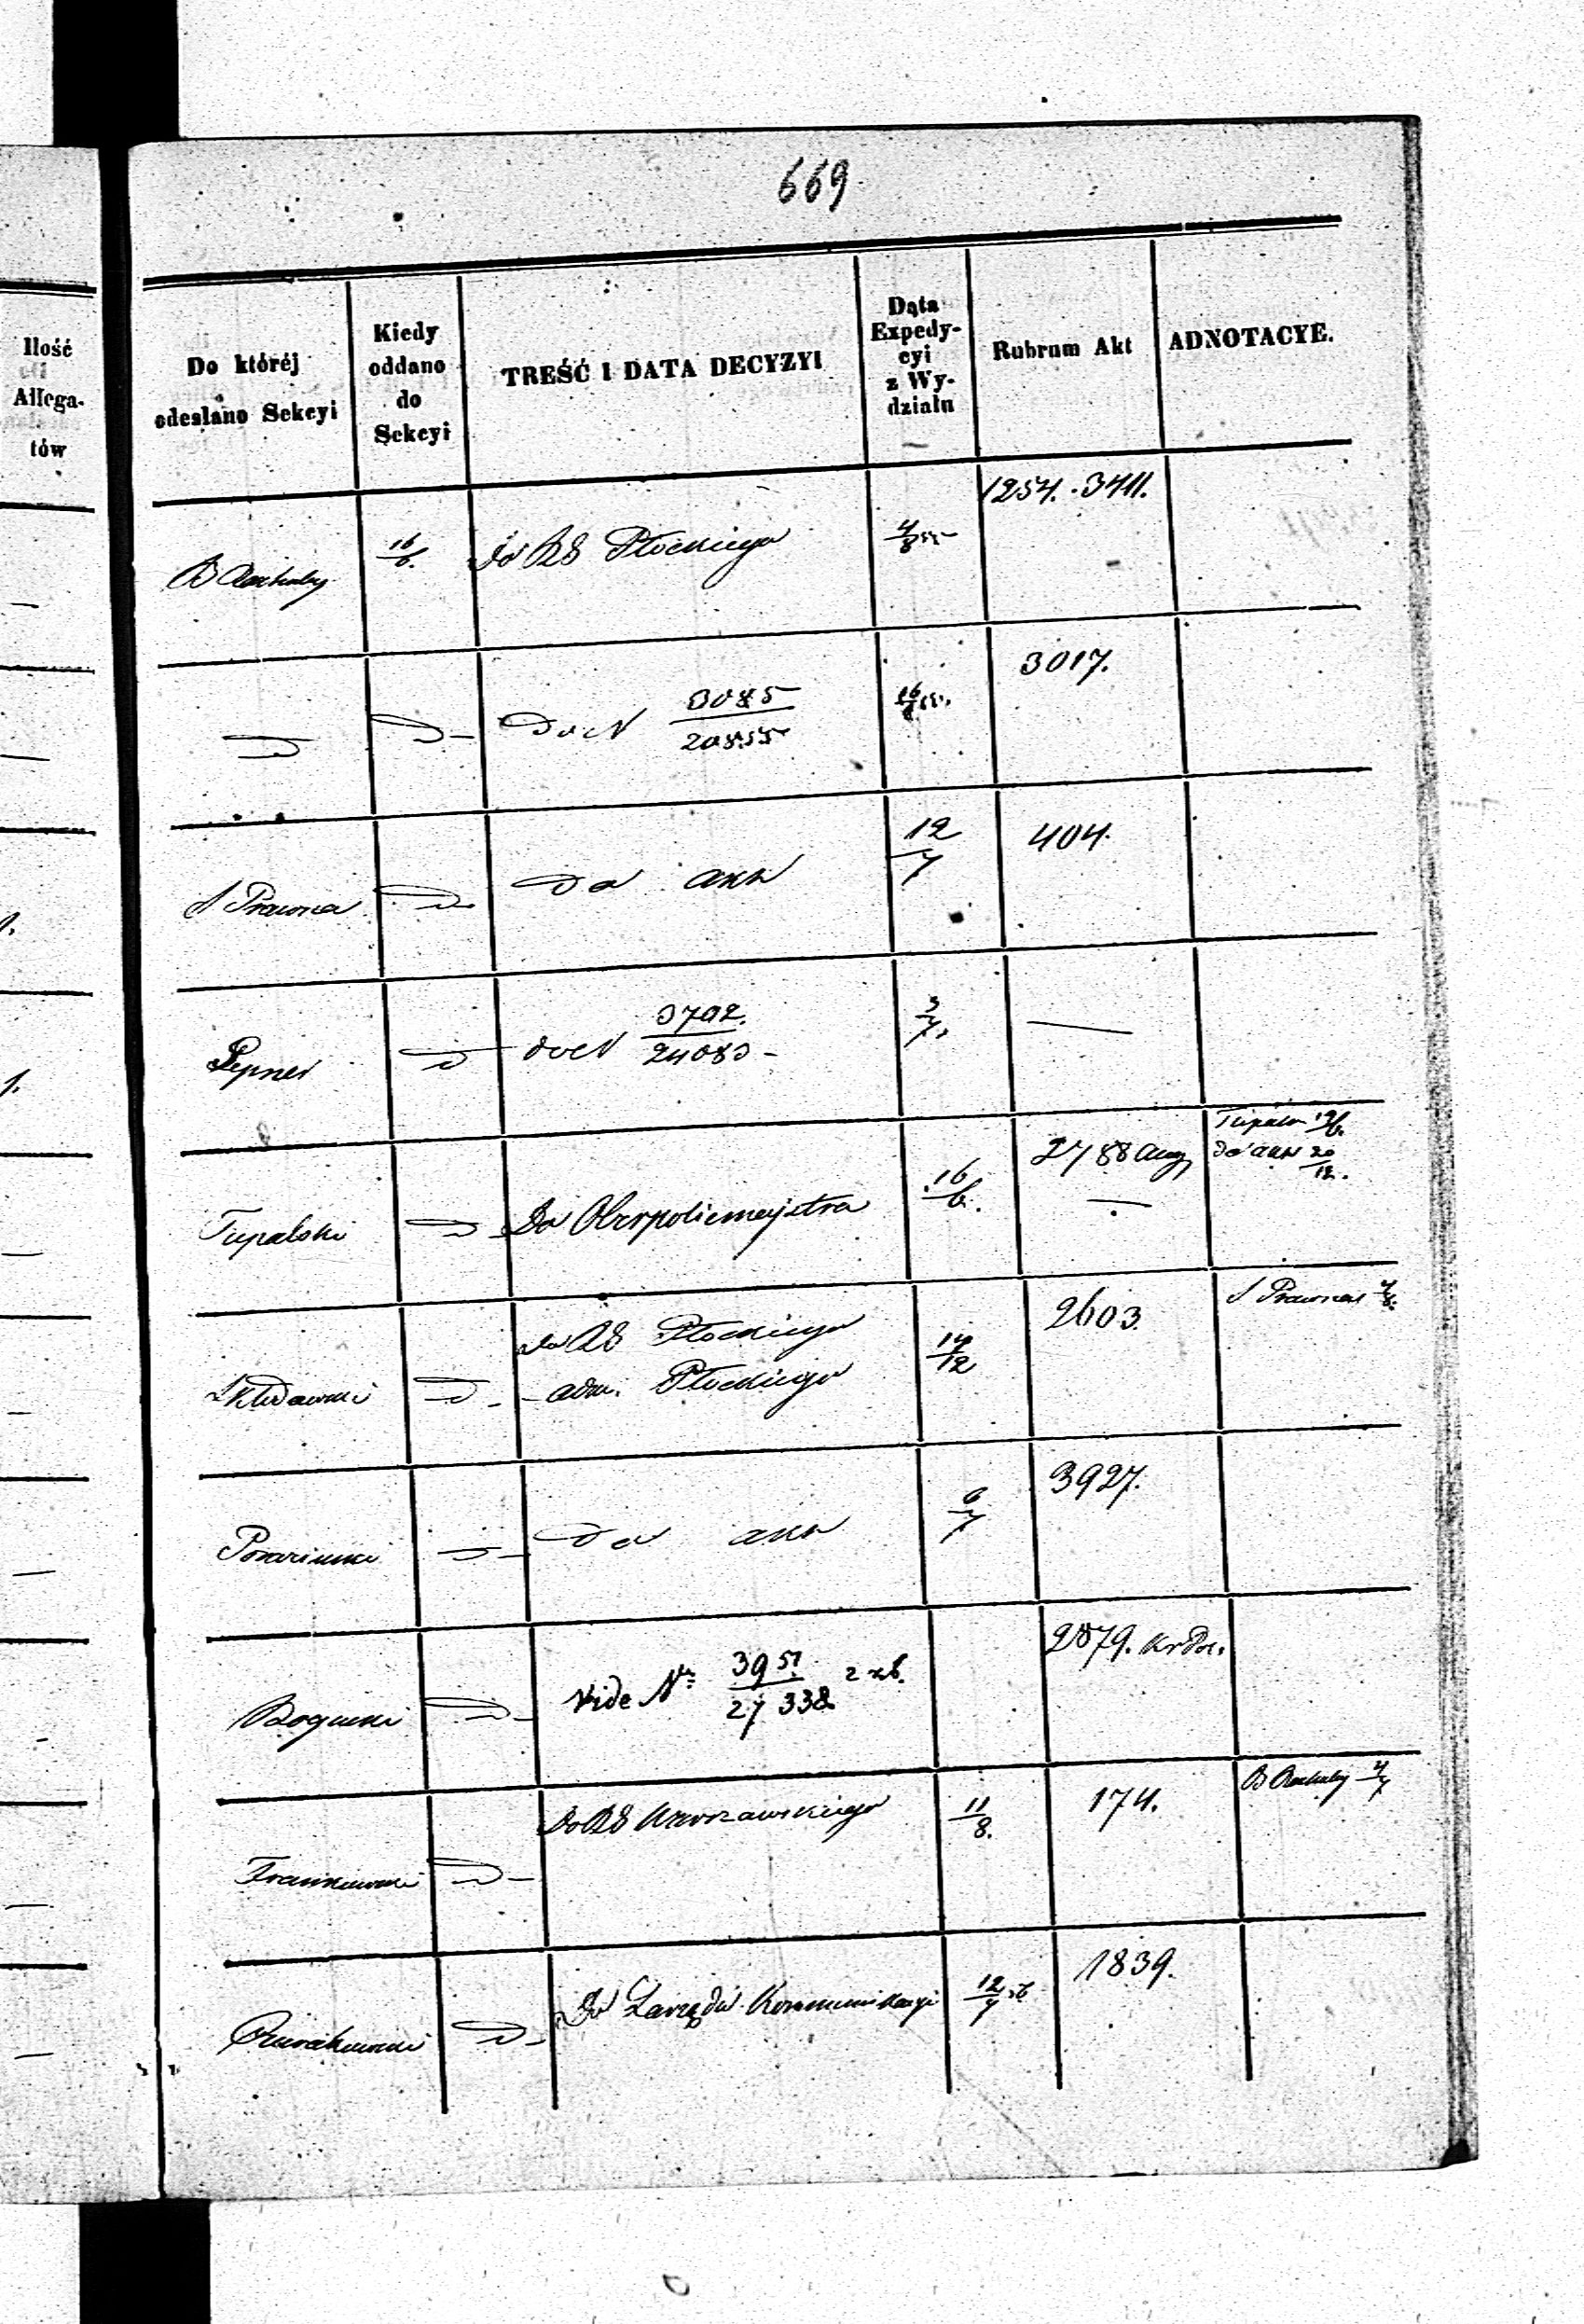 669
Ilość
Allega-
tów
Do któréj
odesłano Sekcyi
Kiedy
oddano
do
Sekcyi
TREŚĆ I DATA DECYZYI
Data
Expedy-
cyi
z Wy-
działu
Rubrum Akt
ADNOTACYE.
B Rachuby
16/6.
do RG Płockiego
4/8
1254. 3411.
D
D
do N 3085/20855
16/8
3017.
S Prawna
D
do akt
12/7
404.
Pepner
D
do N 3702./24083
3/7.
—
Tupalski
D
Do Oberpolicmajstra
16/6.
2788 Aug
do akt 20/12.
D
do RG Płockiego
adm. Płockiego
14/12
2603.
S Prawna 4/8.
D
do akt
6/7
3927.
Bogucki
D
Vide № 3951./27338 z r b.
2879.
Frankowski
D
Do RG Warszawskiego
11/8.
174.
B Rachuby 4/7
D
Do Zarządu Kommunikacyi
12/7
1839.